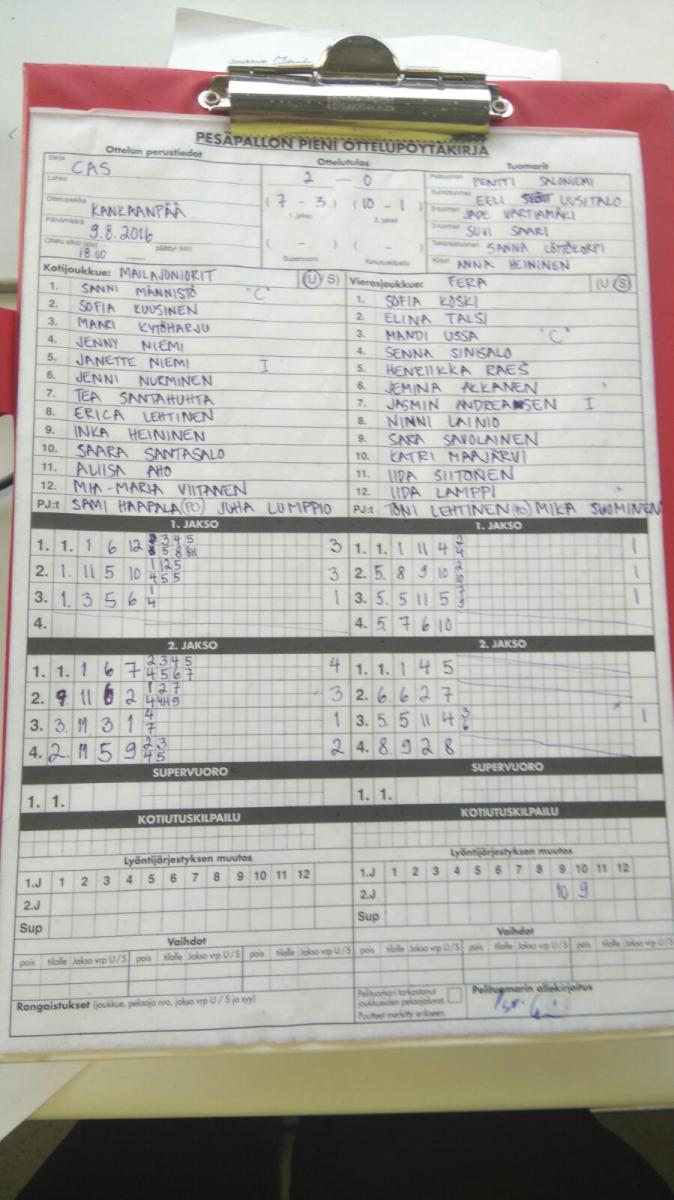 PESÄPALLON PIENI OTTELUPÖYTÄKIRJA
Ottelun perustiedot Ottelutulos Tuomarit
Sarja CAS
Lohko
Ottelupaikka KANKAANPÄÄ
Päivämäärä 9.8.2016
Ottelu alkoi (klo) 18.00 päättyi (klo)
2 – 0
(7 - 3) (10 - 1)
1. jakso 2. jakso
( - ) ( - )
Supervuoro Kotiutuskilpailu
Pelituomari PENTTI SALONIEMI
EELI UUSITALO
2-tuomari JADE VARTIAMÄKI
3-tuomari SUVI SAARI
Takarajatuomari SANNA LÖTTÖKORPI
Kirjuri ANNA HEININEN
Kotijoukkue: MAILAJUNIORIT (U S)
1. SANNI MÄNNISTÖ "C"
2. SOFIA KUUSINEN
3. MAARI KYTÖHARJU
4. JENNY NIEMI
5. JANETTE NIEMI I
6. JENNI NURMINEN
7. TEA SANTAHUHTA
8. ERICA LEHTINEN
9. INKA HEININEN
10. SAARA SANTASALO
11. ALIISA AHO
12. MIA-MARIA VIITANEN
PJ:t SAMI HAAPALA (PO) JUHA LUMPPIO
Vierasjoukkue: FERA (U S)
1. SOFIA KOSKI
2. ELINA TALSI
3. MANDI USSA "C"
4. SENNA SINISALO
5. HENRIIKKA RAES
6. JEMINA AKKANEN
7. JASMIN ANDREASEN I
8. NINNI LAINIO
9. SARA SAVOLAINEN
10. KATRI MAAJÄRVI
11. IIDA SIITONEN
12. IIDA LAMPPI
PJ:t TONI LEHTINEN (PO) MIKA SUOMINEN
1. JAKSO 1. JAKSO
1. 1. 1 6 12 3
2. 1. 11 5 10 125 455 3
3. 1. 3 5 6 1 4 1
4.
1. 1. 1 11 4 2 4 1
2. 5. 8 9 10 2 10 1
3. 5. 5 11 5 7 9 1
4. 5. 7 6 10
2. JAKSO 2. JAKSO
1. 1. 1 6 7 2345 4567 4
2. 9. 11 6 2 127 3
3. 3. 11 3 1 4 7 1
4. 2. 11 5 9 23 45 2
1. 1. 1 4 5
2. 6. 6 2 7
3. 5. 5 11 4 3 6 1
4. 8. 9 2 8
SUPERVUORO SUPERVUORO
1. 1. 1. 1.
KOTIUTUSKILPAILU KOTIUTUSKILPAILU
Lyöntijärjestyksen muutos Lyöntijärjestyksen muutos
1.J 1 2 3 4 5 6 7 8 9 10 11 12 1.J 1 2 3 4 5 6 7 8 9 10 11 12
2.J 2.J 10 9
Sup Sup
Vaihdot Vaihdot
pois tilalle Jakso vrp U / S pois tilalle Jakso vrp U / S pois tilalle Jakso vrp U / S pois tilalle Jakso vrp U / S pois tilalle Jakso vrp U / S pois tilalle Jakso vrp U / S
Rangaistukset (joukkue, pelaaja nro, jakso vrp U / S ja syy)
Pelituomari tarkastanut
joukkueiden pelaajaluvat.
Puutteet merkitty erikseen.
Pelituomarin allekirjoitus